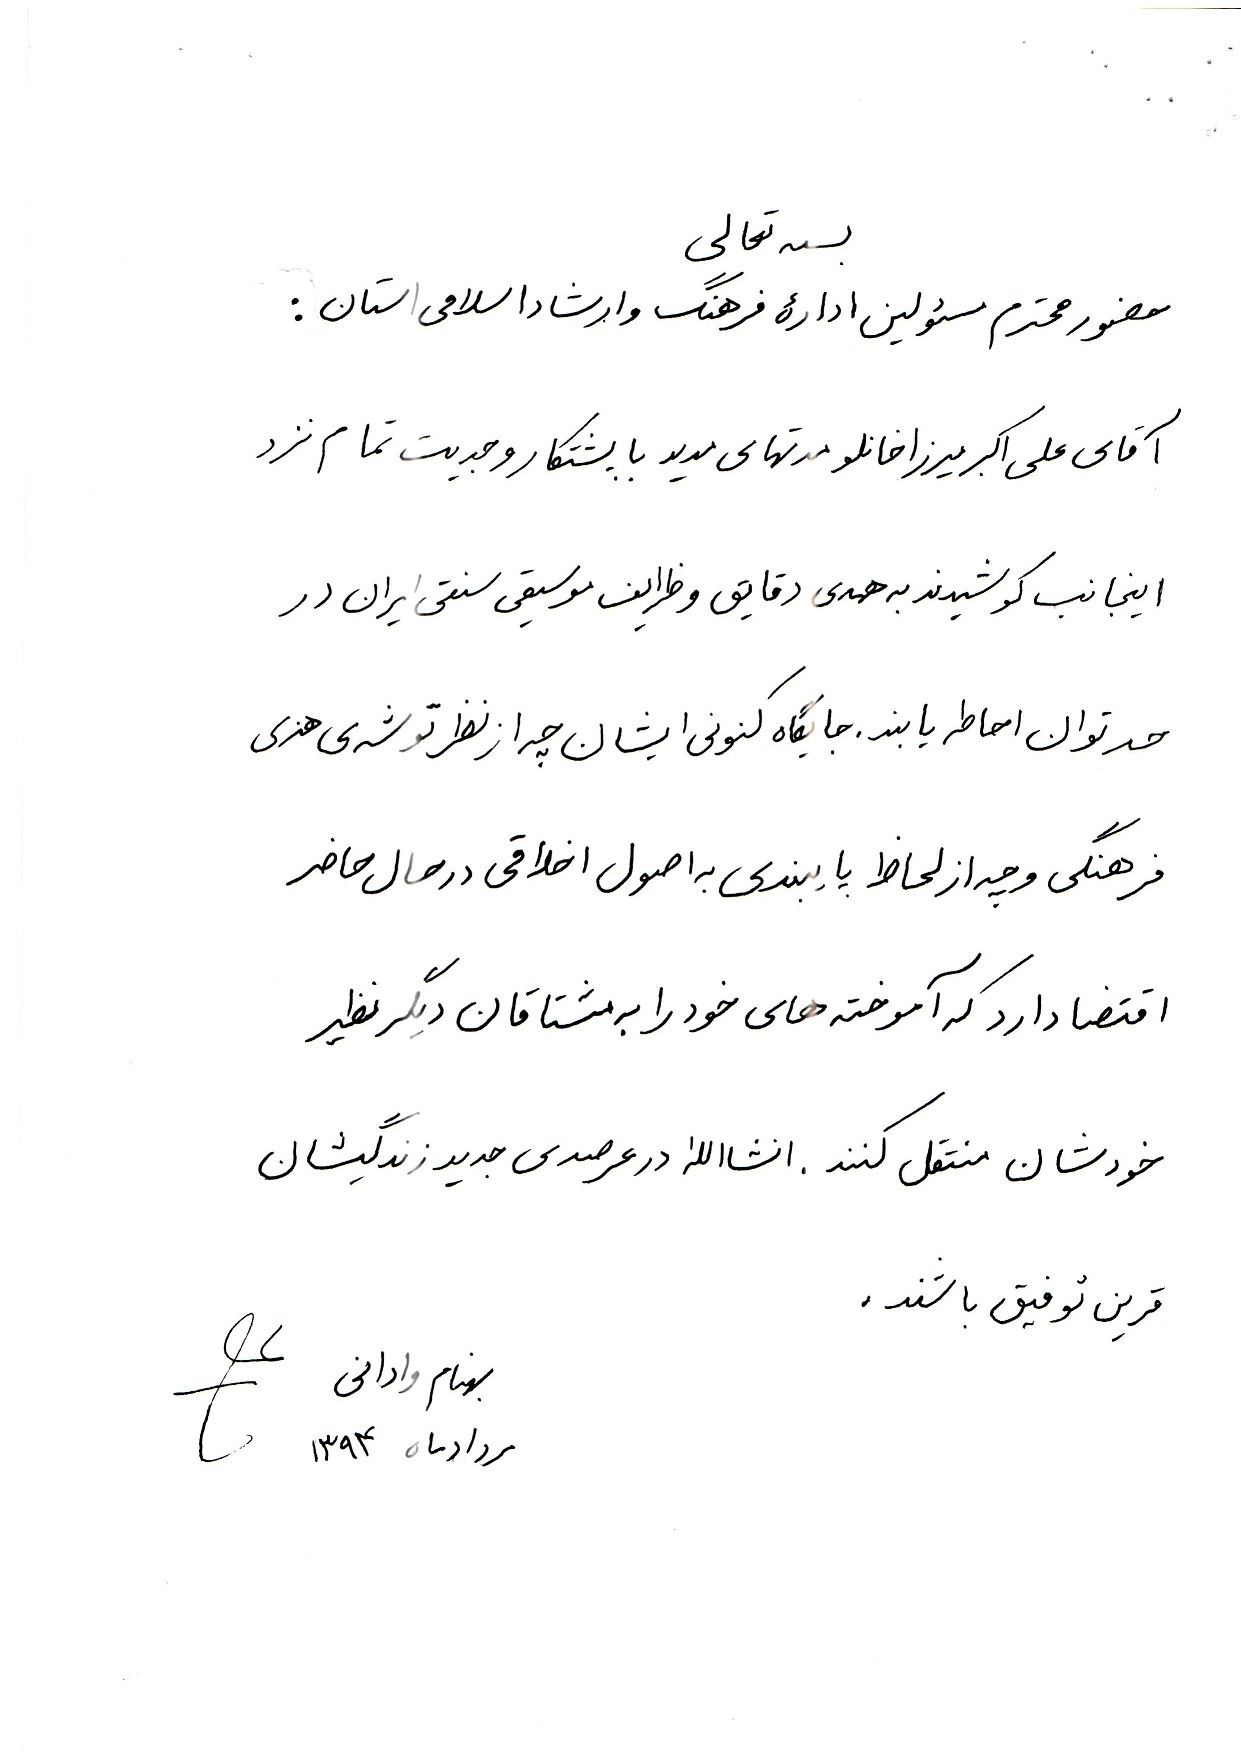 بسمه تعالی
حضور محترم مسئولین ادارهٔ فرهنگ و ارشاد اسلامی استان :
آقای علی اکبر میرزاخانلو مدتهای مدید با پشتکار و جدیت تمام نزد
اینجانب کوشیدند به همه‌ی دقایق و ظرایف موسیقی سنتی ایران در
حد توان احاطه یابند. جایگاه کنونی ایشان چه از نظر توشه‌ی هنری
فرهنگی و چه از لحاظ پایبندی به اصول اخلاقی در حال حاضر
اقتضا دارد که آموخته‌های خود را به مشتاقان دیگر نظیر
خودشان منتقل کنند. انشاالله در عرصه‌ی جدید زندگیشان
قرین توفیق باشند.
بهنام وادانی
مرداد ماه ۱۳۹۴